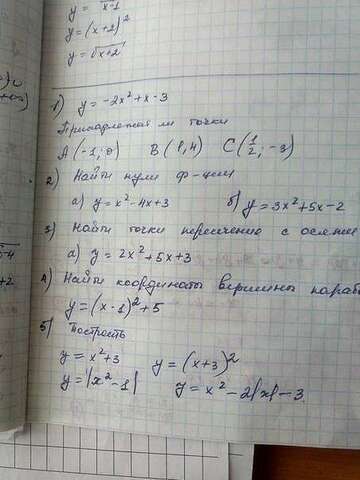 y = √x-1
y = (x+2)²
y = √x+2
1) y = -2x²+x-3
Принадлежат ли точки
A(-1; 0) B(1,4) C(1/2; -3)
2) Найти нули ф-ции
а) y = x²-4x+3 б) y = 3x²+5x-2
3) Найти точки пересечение с осями
а) y = 2x²+5x+3
4) Найти координаты вершины параб
y = (x-1)²+5
5) Построить
y = x²+3 y = (x+3)²
y = |x²-1| y = x²-2|x|-3